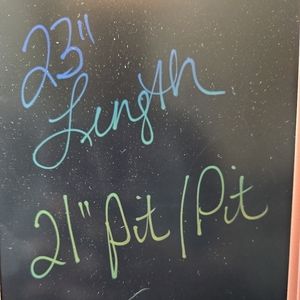 23"
Length
21" Pit/Pit